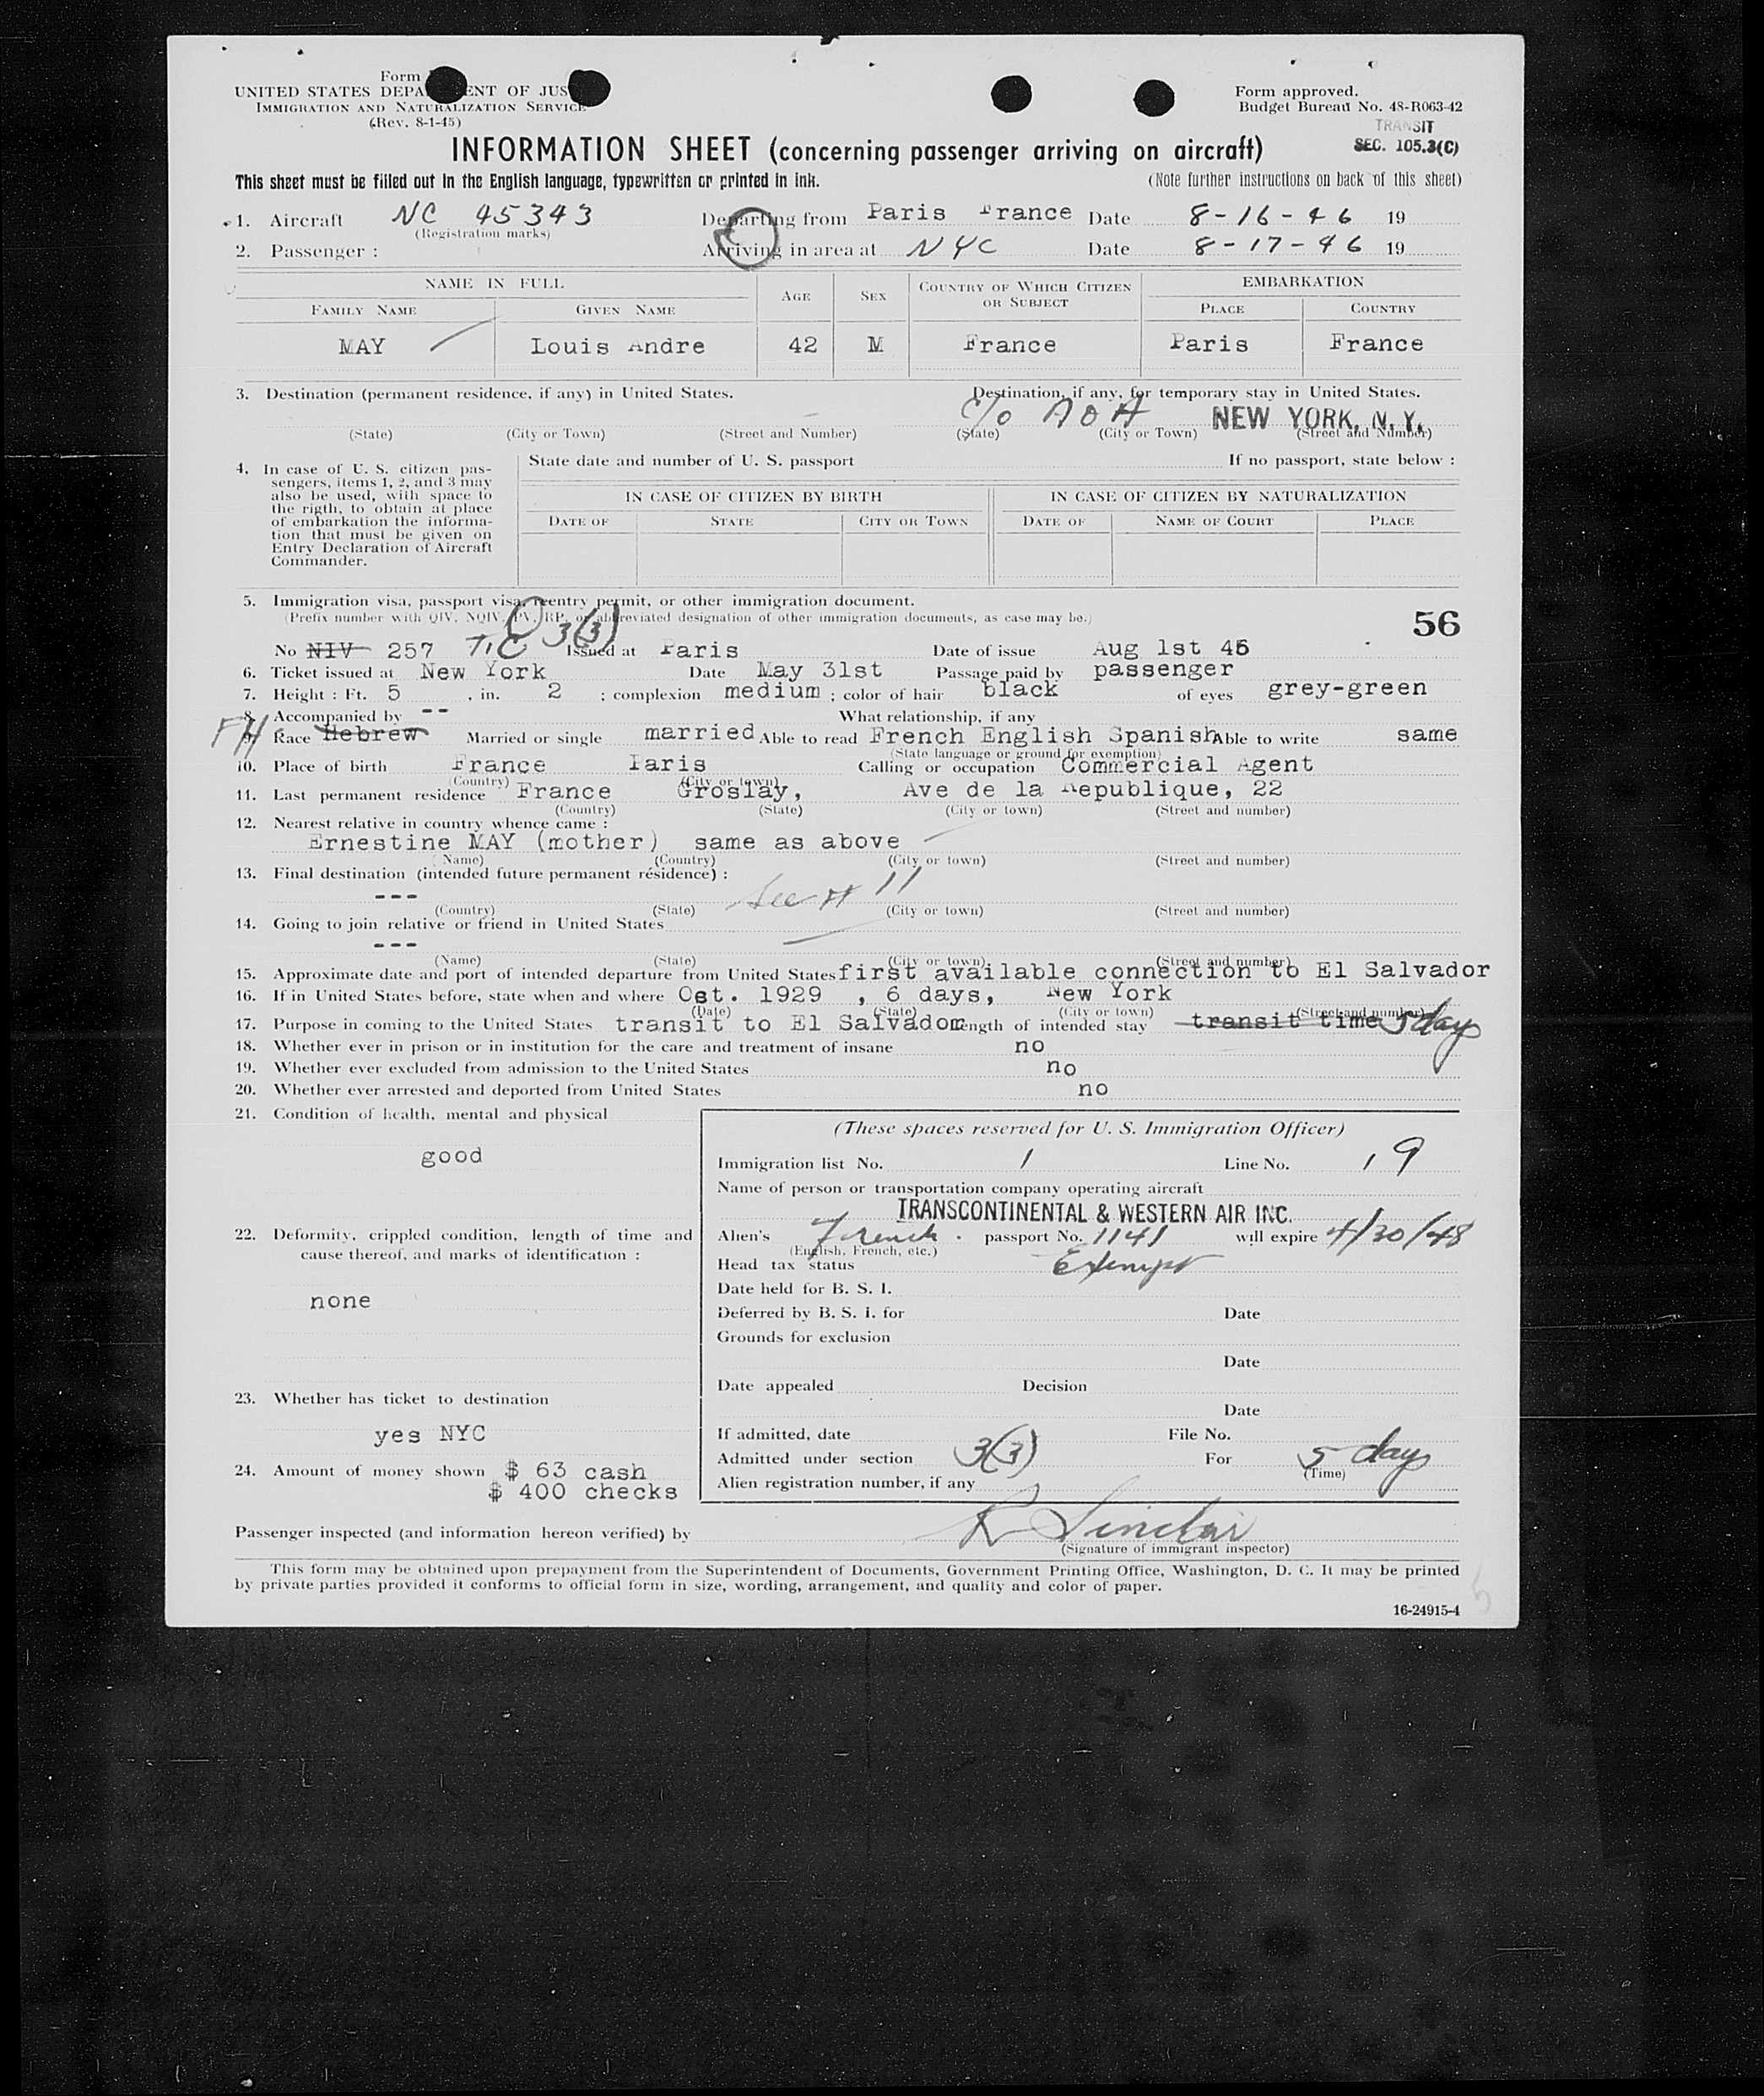 Form
UNITED STATES DEPA ENT OF JUS
IMMIGRATION AND NATURALIZATION SERVICE
(Rev. 8-1-45)
Form approved.
Budget Bureau No. 48-R063-42
TRANSIT
SEC. 105.3(C)
INFORMATION SHEET (concerning passenger arriving on aircraft)
This sheet must be filled out in the English language, typewritten or printed in ink. (Note further instructions on back of this sheet)
1. Aircraft NC 45343 Departing from Paris France Date 8-16-46 19
(Registration marks)
2. Passenger : Arriving in area at NYC Date 8-17-46 19
NAME IN FULL AGE SEX COUNTRY OF WHICH CITIZEN OR SUBJECT EMBARKATION
FAMILY NAME GIVEN NAME PLACE COUNTRY
MAY Louis Andre 42 M France Paris France
3. Destination (permanent residence, if any) in United States. Destination, if any, for temporary stay in United States.
c/o AOA NEW YORK, N.Y.
(State) (City or Town) (Street and Number) (State) (City or Town) (Street and Number)
4. In case of U. S. citizen pas-
sengers, items 1, 2, and 3 may
also be used, with space to
the rigth, to obtain at place
of embarkation the informa-
tion that must be given on
Entry Declaration of Aircraft
Commander.
State date and number of U. S. passport If no passport, state below :
IN CASE OF CITIZEN BY BIRTH IN CASE OF CITIZEN BY NATURALIZATION
DATE OF STATE CITY OR TOWN DATE OF NAME OF COURT PLACE
5. Immigration visa, passport visa, reentry permit, or other immigration document.
(Prefix number with QIV, NQIV, PV, RP, or abbreviated designation of other immigration documents, as case may be.)
56
3(3)
No NIV 257 TIC Issued at Paris Date of issue Aug 1st 46
6. Ticket issued at New York Date May 31st Passage paid by passenger
7. Height : Ft. 5 , in. 2 ; complexion medium ; color of hair black of eyes grey-green
8. Accompanied by -- What relationship, if any
FH 9. Race Hebrew Married or single married Able to read French English Spanish Able to write same
(State language or ground for exemption)
10. Place of birth France Paris Calling or occupation Commercial Agent
(Country) (City or town)
11. Last permanent residence France Groslay, Ave de la Republique, 22
(Country) (State) (City or town) (Street and number)
12. Nearest relative in country whence came :
Ernestine MAY (mother) same as above
(Name) (Country) (City or town) (Street and number)
13. Final destination (intended future permanent résidence) :
--- See # 11
(Country) (State) (City or town) (Street and number)
14. Going to join relative or friend in United States
---
(Name) (State) (City or town) (Street and number)
15. Approximate date and port of intended departure from United States first available connection to El Salvador
16. If in United States before, state when and where Oct. 1929 , 6 days, New York
(Date) (State) (City or town) (Street and number)
17. Purpose in coming to the United States transit to El Salvador Length of intended stay transit time 5 days
18. Whether ever in prison or in institution for the care and treatment of insane no
19. Whether ever excluded from admission to the United States no
20. Whether ever arrested and deported from United States no
21. Condition of health, mental and physical
good
22. Deformity, crippled condition, length of time and
cause thereof, and marks of identification :
none
23. Whether has ticket to destination
yes NYC
24. Amount of money shown $ 63 cash
$ 400 checks
(These spaces reserved for U. S. Immigration Officer)
Immigration list No. 1 Line No. 19
Name of person or transportation company operating aircraft
TRANSCONTINENTAL & WESTERN AIR INC.
Alien's French. passport No. 1141 will expire 4/30/48
(English, French, etc.)
Head tax status Exempt
Date held for B. S. I.
Deferred by B. S. I. for Date
Grounds for exclusion
Date
Date appealed Decision
Date
If admitted, date File No.
Admitted under section 3(3) For 5 days
(Time)
Alien registration number, if any
Passenger inspected (and information hereon verified) by R Sinclair
(Signature of immigrant inspector)
This form may be obtained upon prepayment from the Superintendent of Documents, Government Printing Office, Washington, D. C. It may be printed
by private parties provided it conforms to official form in size, wording, arrangement, and quality and color of paper.
16-24915-4